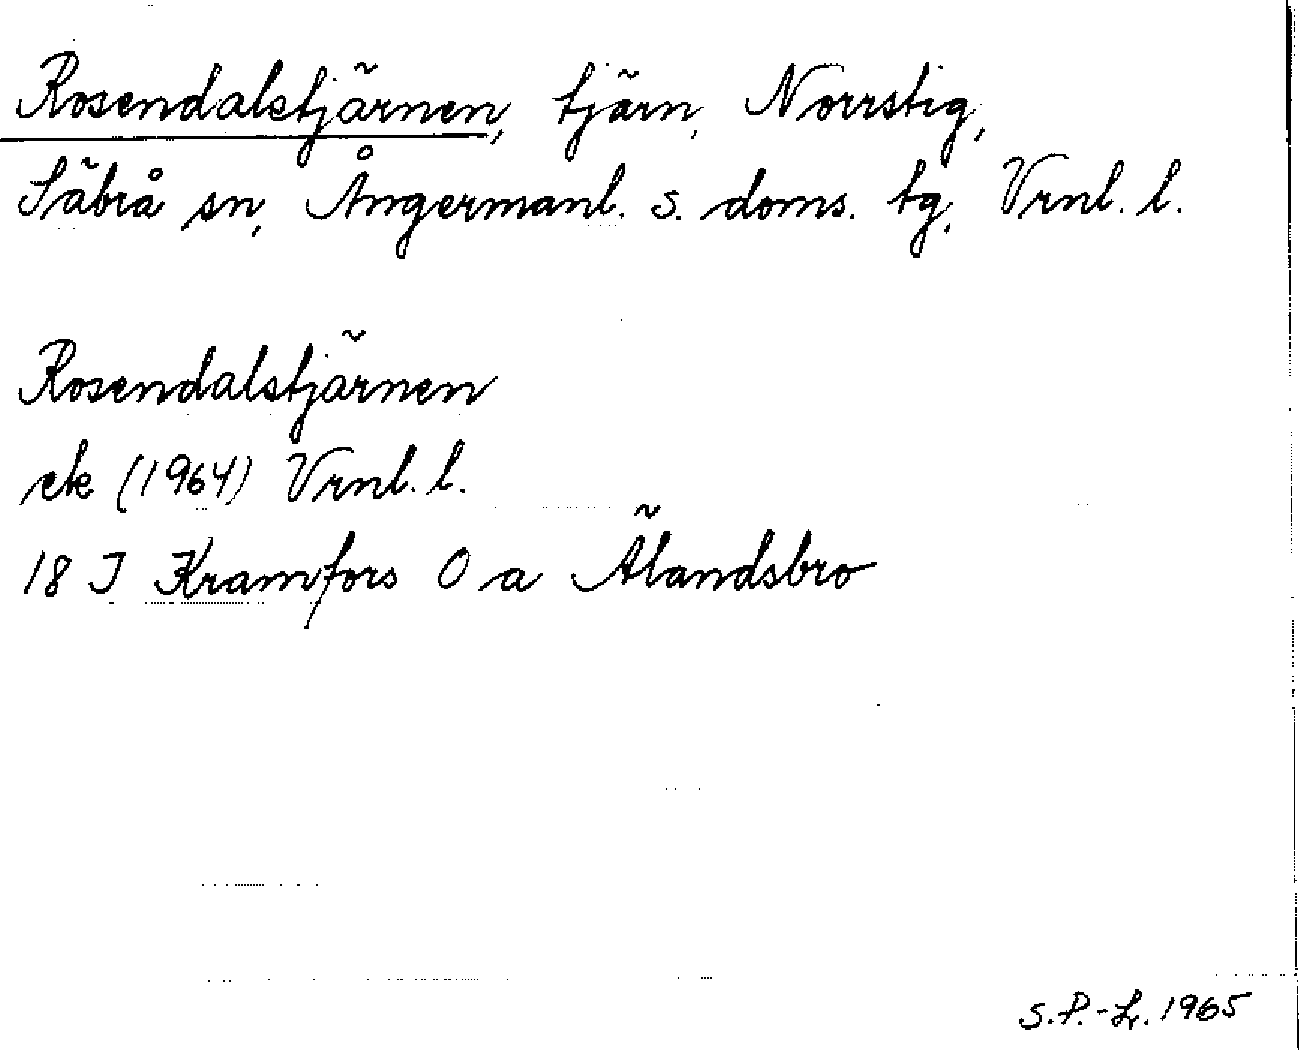 Rosendalstjärnen, tjärn, Norrstig,
Säbrå sn, Ångermanl. s. doms. tg, Vrnl. l.
Rosendalstjärnen
ek (1964) Vrnl. l.
18 I Kramfors O a Älandsbro
S.P.-L. 1965